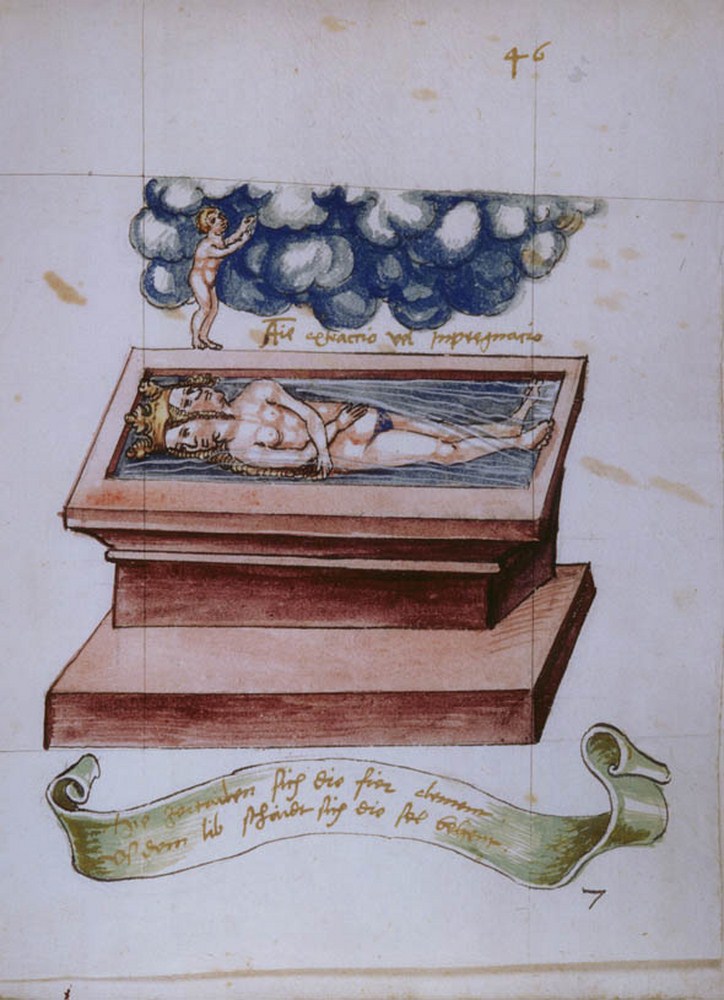 46
Aīe extractio vel Inpregnacio
Hie zertailen sich die fier element
uß dem lib schaidt sich die sel behent.
7